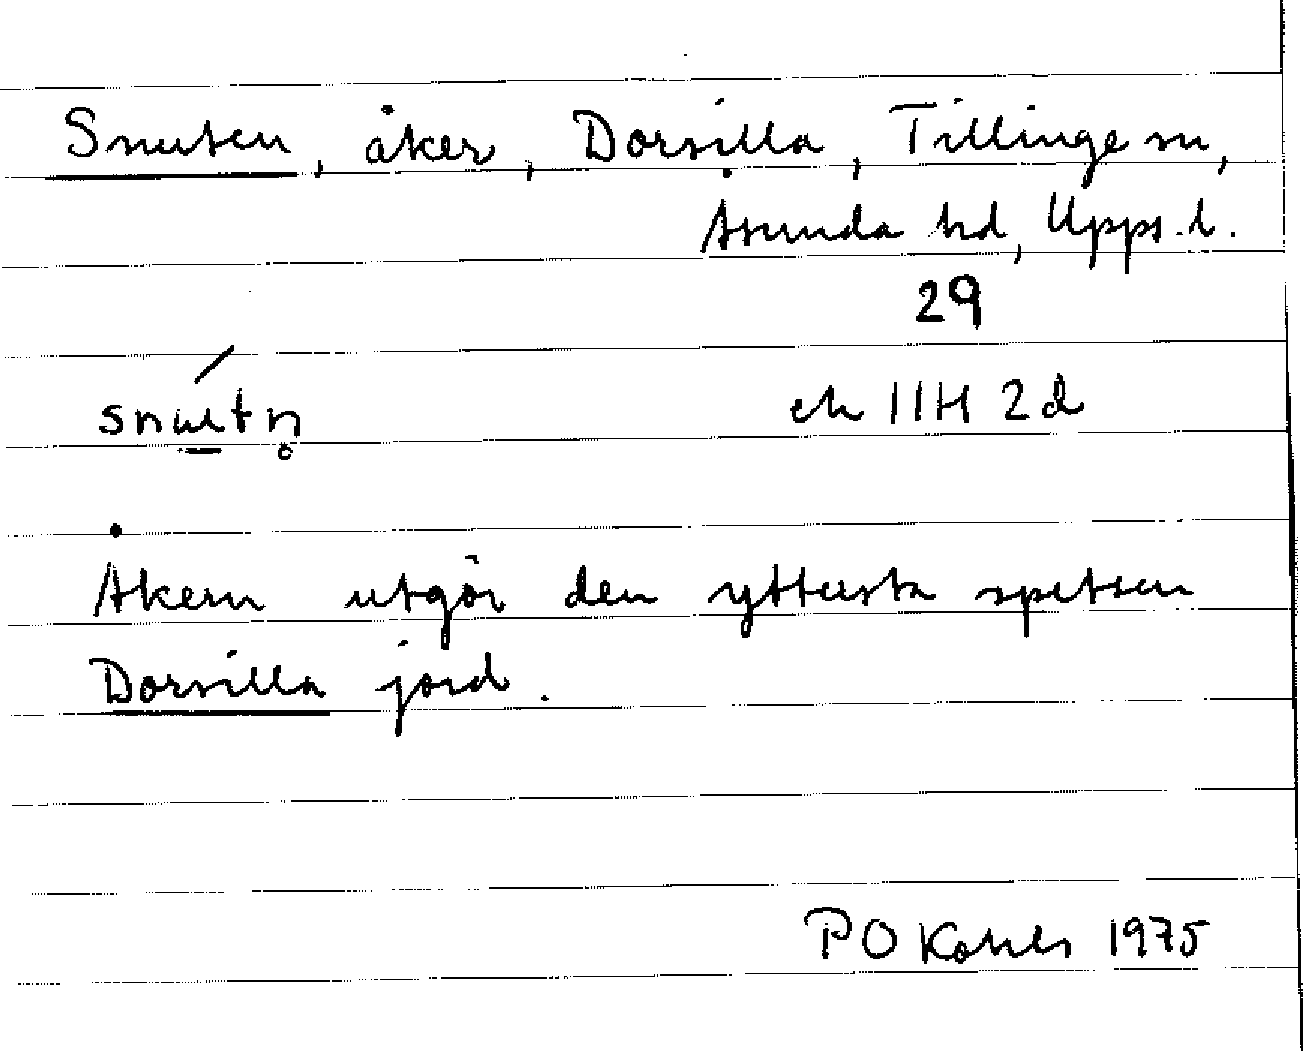 Snuten, åker, Dorsilla, Tillinge sn,
Åsunda hd, Upps. l.
29
snu̲tn̥ ek 11H 2d
Åkern utgör den yttersta spetsen
Dorsilla jord.
P O 1975